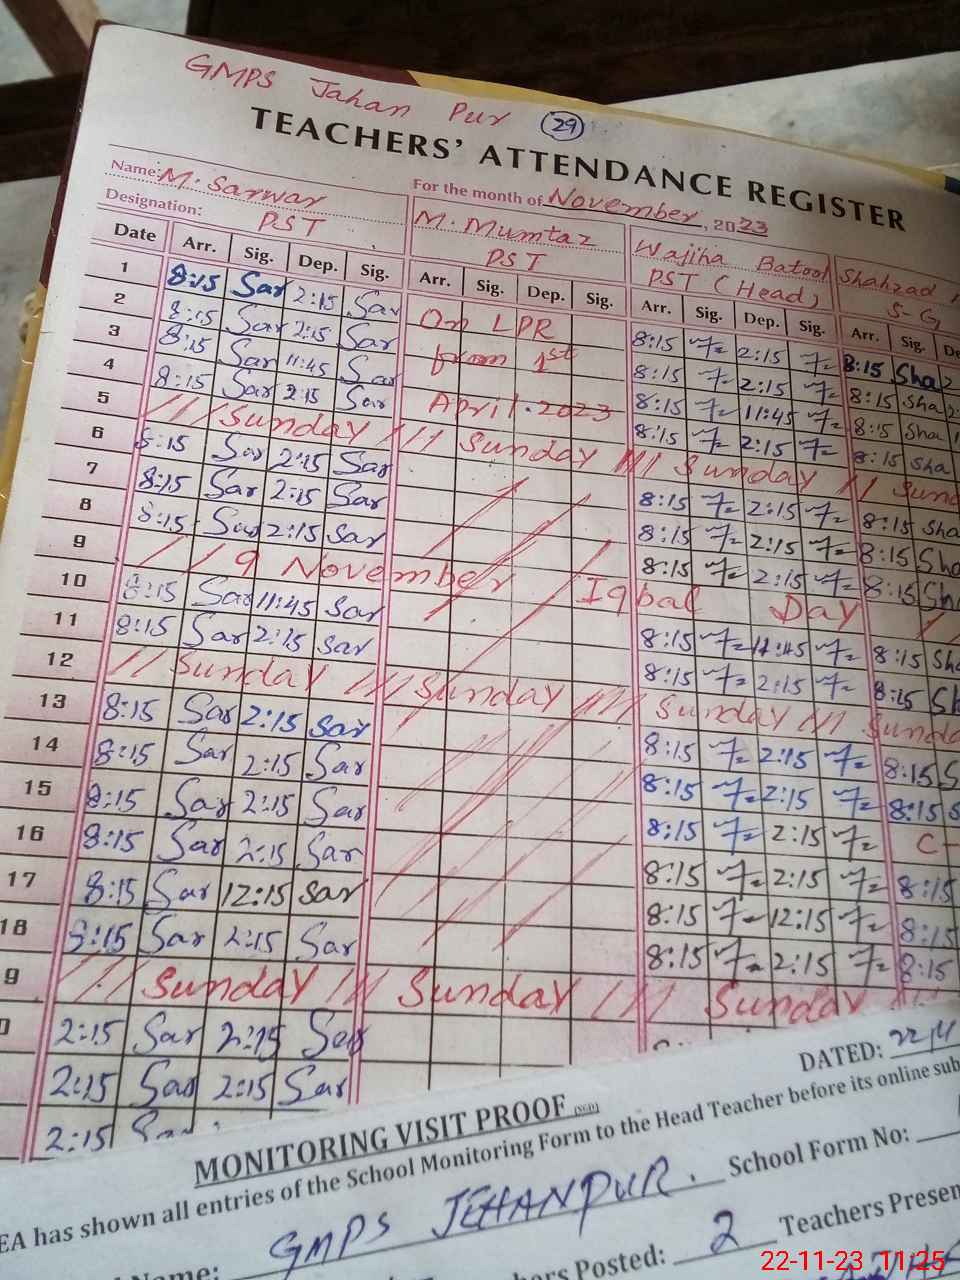 GMPS Jahan Pur 29
TEACHERS' ATTENDANCE REGISTER
Name: M. Sarwar For the month of November, 2023
Designation: PST M. Mumtaz PST Wajiha Batool PST (Head) Shahzad S-G
Date Arr. Sig. Dep. Sig. Arr. Sig. Dep. Sig. Arr. Sig. Dep. Sig. Arr. Sig. De
1 8:15 Sar 2:15 Sar On LPR 8:15 2:15 8:15 Sha 2
2 8:15 Sar 2:15 Sar from 1st 8:15 2:15 8:15 Sha 2:
3 8:15 Sar 11:45 Sar April. 2023 8:15 11:45 8:15 Sha 1
4 8:15 Sar 2:15 Sar 8:15 2:15 8:15 Sha
5 /// Sunday /// Sunday /// Sunday // Sund
6 8:15 Sar 2:15 Sar 8:15 2:15 8:15 Sha
7 8:15 Sar 2:15 Sar 8:15 2:15 8:15 Sha
8 8:15 Sar 2:15 Sar 8:15 2:15 8:15 Sha
9 // 9 November / Iqbal Day //
10 8:15 Sar 11:45 Sar 8:15 11:45 8:15 Sha
11 8:15 Sar 2:15 Sar 8:15 2:15 8:15 Sh
12 // Sunday /// Sunday //// Sunday /// Sunda
13 8:15 Sar 2:15 Sar 8:15 2:15 8:15 S
14 8:15 Sar 2:15 Sar 8:15 2:15 8:15 S
15 8:15 Sar 2:15 Sar 8:15 2:15 C-
16 8:15 Sar 2:15 Sar 8:15 2:15 8:15
17 8:15 Sar 12:15 Sar 8:15 12:15 8:15
18 8:15 Sar 2:15 Sar 8:15 2:15 8:15
9 /// Sunday /// Sunday /// Sunday
0 2:15 Sar 2:15 Sar
2:15 Sar 2:15 Sar
2:15
DATED: 22/11
MONITORING VISIT PROOF
EA has shown all entries of the School Monitoring Form to the Head Teacher before its online sub
Name: GMPS JEHANPUR. School Form No:
hers Posted: 2 Teachers Presen
22-11-23 11:25